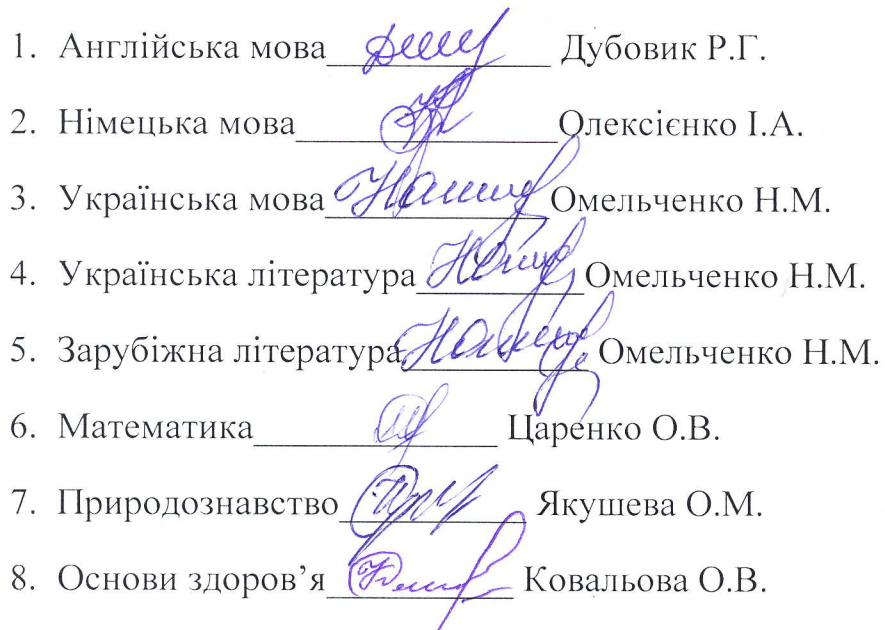 1. Англійська мова Дубовик Р.Г.
2. Німецька мова Олексієнко І.А.
3. Українська мова Омельченко Н.М.
4. Українська література Омельченко Н.М.
5. Зарубіжна література Омельченко Н.М.
6. Математика Царенко О.В.
7. Природознавство Якушева О.М.
8. Основи здоров’я Ковальова О.В.